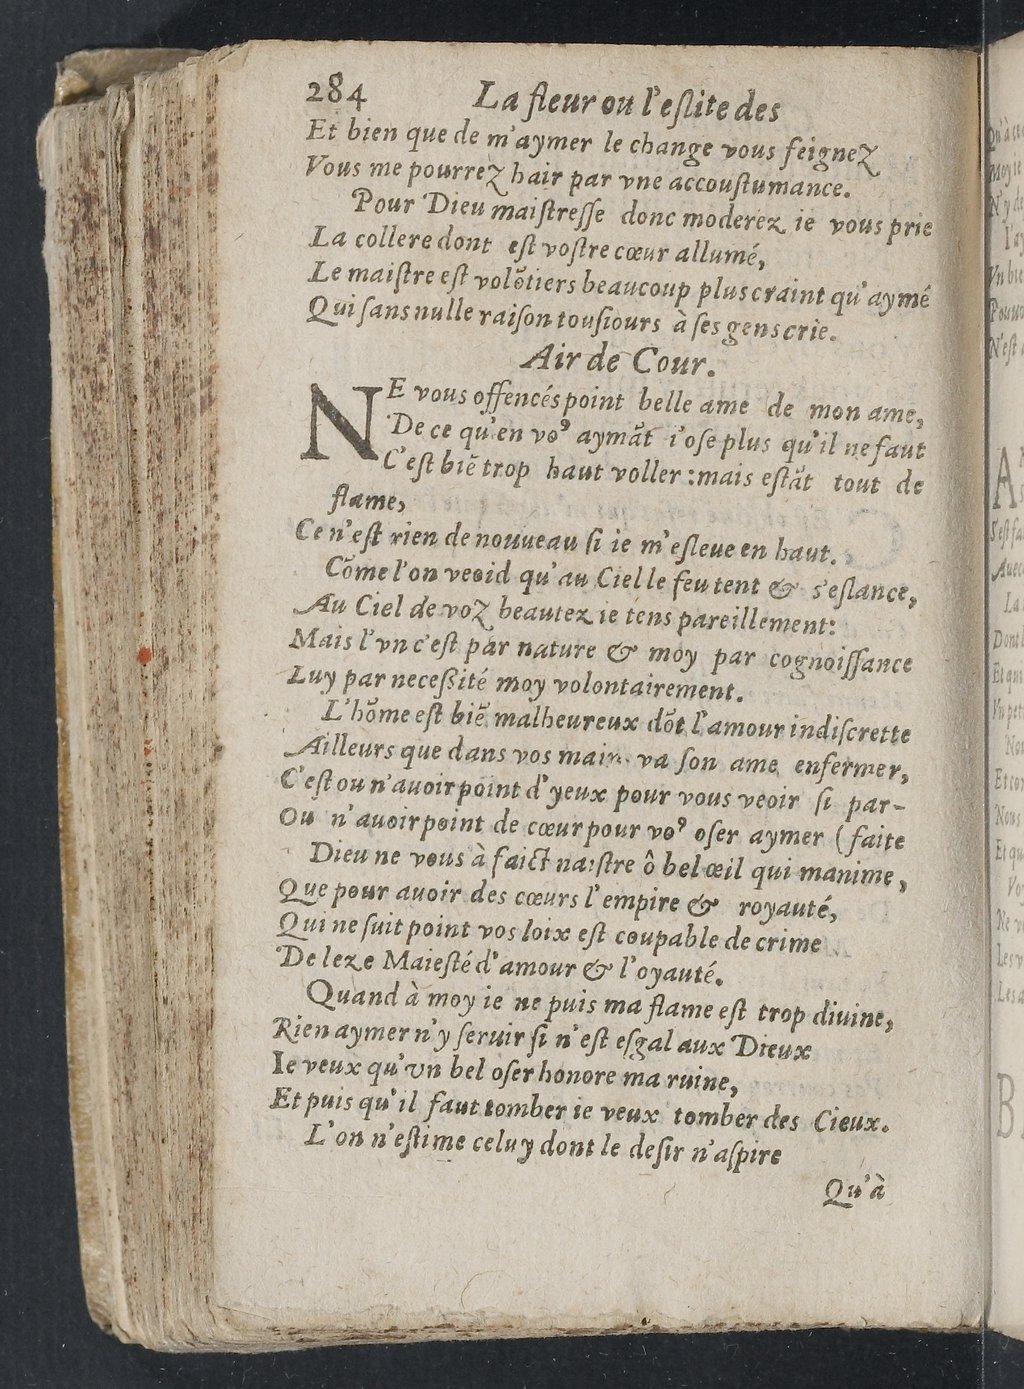 284 La fleur ou l'eſlite des
Et bien que de m'aymer le change vous feignez
Vous me pourrez hair par vne accouſtumance.
Pour Dieu maiſtreſſe donc moderez ie vous prie
La collere dont eſt voſtre cœur allumé,
Le maiſtre eſt volõtiers beaucoup plus craint qu'aymé
Qui ſans nulle raiſon touſiours à ſes gens crie.
Air de Cour.
NE vous offencés point belle ame de mon ame,
De ce qu'en voꝰ aymãt i'oſe plus qu'il ne faut
C'eſt biẽ trop haut voller : mais eſtãt tout de
flame,
Ce n'eſt rien de nouueau ſi ie m'eſleue en haut.
Cõme l'on veoid qu'au Ciel le feu tent & s'eſlance,
Au Ciel de voz beautez ie tens pareillement:
Mais l'vn c'eſt par nature & moy par cognoiſſance
Luy par neceſſité moy volontairement.
L'hõme eſt biẽ malheureux dõt l'amour indiſcrette
Ailleurs que dans vos main va ſon ame enfermer,
C'eſt ou n'auoir point d'yeux pour vous veoir ſi par-
Ou n'auoir point de cœur pour voꝰ oſer aymer (faite
Dieu ne vous à faict naiſtre ô bel œil qui manime,
Que pour auoir des cœurs l'empire & royauté,
Qui ne ſuit point vos loix eſt coupable de crime
De leze Maieſté d'amour & l'oyauté.
Quand à moy ie ne puis ma flame eſt trop divine,
Rien aymer n'y ſeruir ſi n'eſt eſgal aux Dieux
Ie veux qu'vn bel oſer honore ma ruine,
Et puis qu'il faut tomber ie veux tomber des Cieux.
L'on n'eſtime celuy dont le deſir n'aſpire
Qu'à